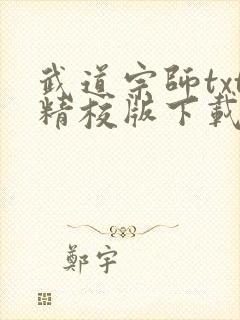 武道宗師txt
精校版下載
鄭宇